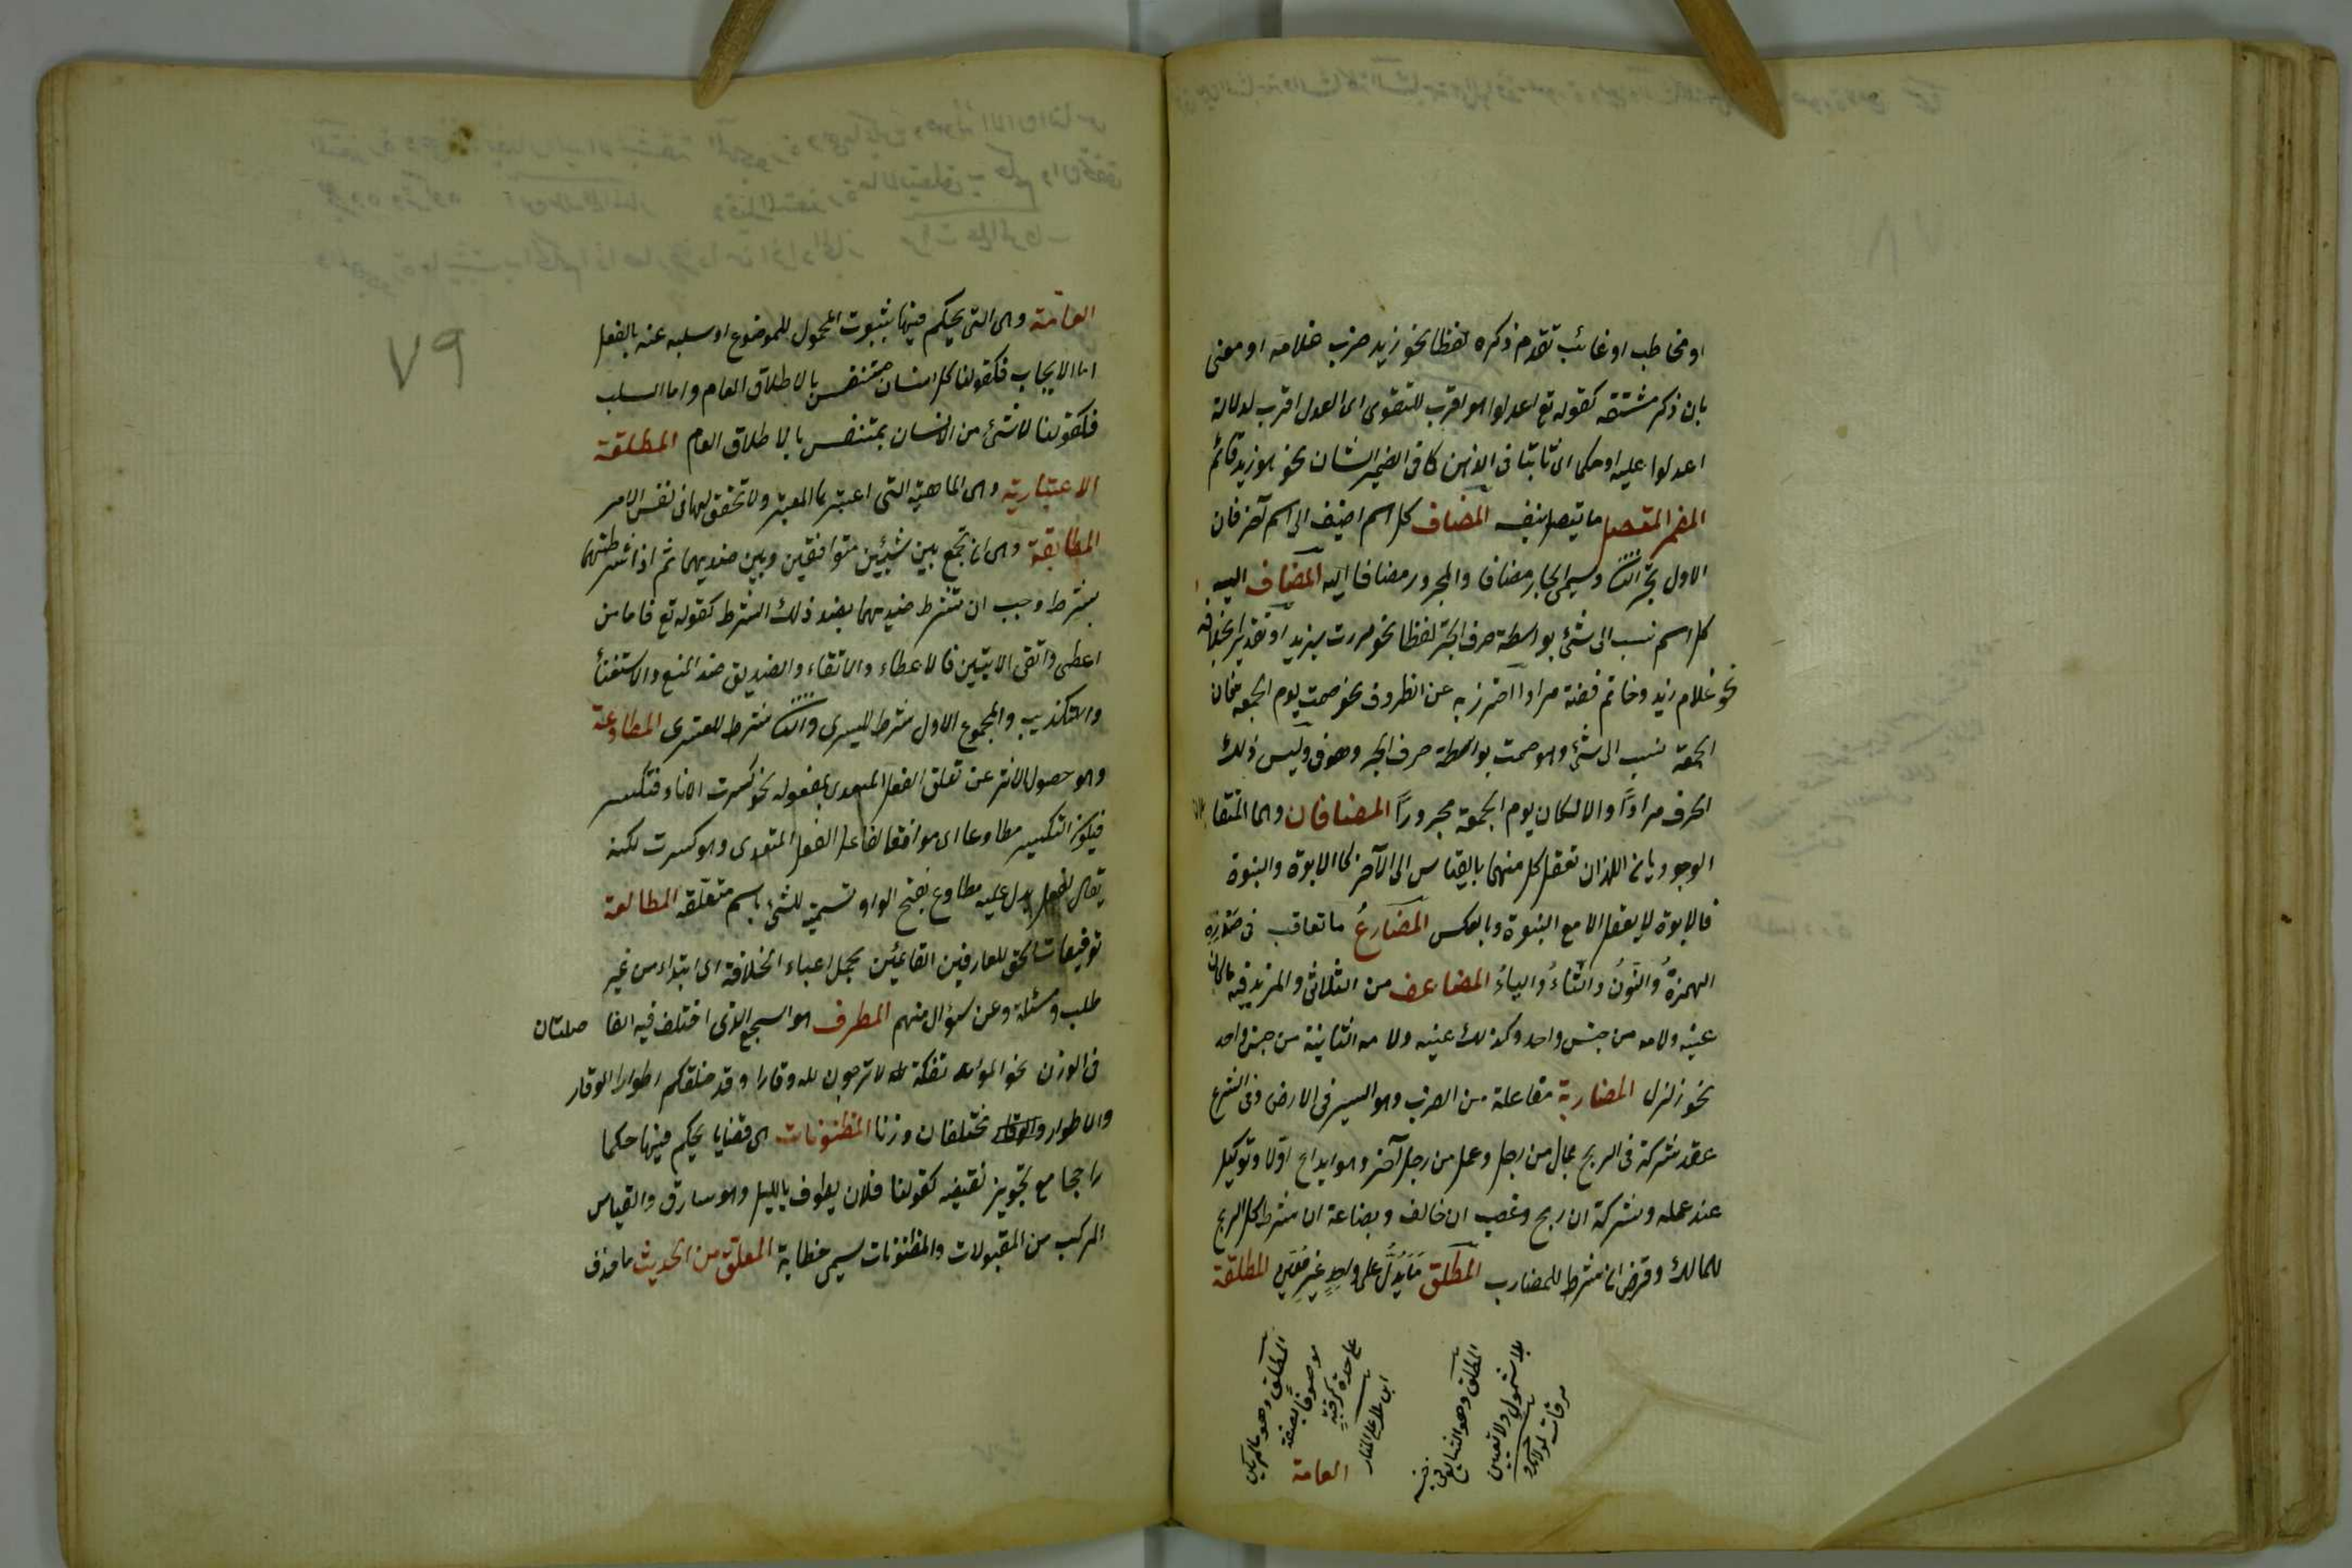 او مخاطب او غائب تقدم ذكره لفظا نحو زيد ضرب غلامه او معنى
بان ذكر مشتقه كقوله تع اعدلوا هو اقرب للتقوى اى العدل اقرب لدلالة
اعدلوا عليه او حكما اى ثابتا فى الذهن كما فى الضمير الشان نحو هو زيد قائم
المضمر المتصل ما يتصل بنفسه المضاف كل اسم اضيف الى اسم آخر فان
الاول يجر الثانى ويسمى الجار مضافا والمجرور مضافا اليه المضاف اليه
كل اسم نسب الى شئ بواسطة حرف الجر لفظا نحو مررت بزيد او تقديرا
نحو غلام زيد وخاتم فضة مرادا احترز به عن الظروف نحو صمت يوم الجمعة فان
الجمعة نسب الى شئ وهو صمت بواسطة حرف الجر وهو فى وليس ذلك
الحرف مرادًا والا لكان يوم الجمعة مجرورًا المضافان وهما المتقابلان
الوجوديان اللذان تعقل كل منهما بالقياس الى الآخر كالابوة والبنوة
فالابوة لا يعقل الا مع البنوة وبالعكس المضارعُ ما تعاقب فى صدره
الهمزةُ والنونُ والتاءُ والياءُ المضاعف من الثلاثى والمزيد فيه ما كان
عينه ولامه من جنس واحد وكذلك عينه ولامه الثانية من جنس واحد
نحو زلزل المضاربة مفاعلة من الضرب وهو السير فى الارض وفى الشرع
عقد شركة فى الربح بمال من رجل وعمل من رجل آخر وهو ايداع اولا وتوكيل
عند عمله وشركة ان ربح وغصب ان خالف وبضاعة ان شرط كل الربح
للمالك وقرض ان شرط للمضارب المطلق ما يدل على واحد غير معين المطلقة
المطلق وهو
موصوفا بصفة
على حدة
المطلق وهو الشايع فى جنسه
بلا شمول ولا تعيين
العامة
٧٩
العامة وهى التى يحكم فيها بثبوت المحمول للموضوع او سلبه عنه بالفعل
اما الايجاب فكقولنا كل انسان متنفس بالاطلاق العام واما السلب
فكقولنا لا شئ من الانسان بمتنفس بالاطلاق العام المطلقة
الاعتبارية وهى الماهية التى اعتبرها المعتبر ولا تحقق لها فى نفس الامر
المطابقة وهى ان تجمع بين شيئين متوافقين وبين ضديهما ثم اذا شرطتهما
بشرط وجب ان تشترط ضديهما بضد ذلك الشرط كقوله تع فاما من
اعطى واتقى الايتين فالاعطاء والاتقاء والتصديق ضد المنع والاستغناء
والتكذيب والمجموع الاول شرط لليسرى والثانى شرط للعسرى المطاوعة
وهو حصول الاثر عن تعلق الفعل المتعدى بمفعوله نحو كسرت الاناء فتكسر
فيكون التكسر مطاوعا اى موافقا لفاعل الفعل المتعدى وهو كسرت لكنه
يقال لفعل يدل عليه مطاوع بفتح الواو تسمية للشئ باسم متعلقه المطالعة
توفيقات الحق للعارفين القائمين بحمل اعباء الخلافة اى ابتداء من غير
طلب ومسئلة وعن سؤال منهم المطرف هو السجع الذى اختلف فيه الفا صلتان
فى الوزن نحو لا ترجون لله وقارا وقد خلقكم اطوارا الوقار
والاطوار مختلفان وزنا المظنونات هى قضايا يحكم فيها حكما
راجحا مع تجويز نقيضه كقولنا فلان يطوف بالليل وهو سارق والقياس
المركب من المقبولات والمظنونات يسمى خطابة المعلق من الحديث ما حذف